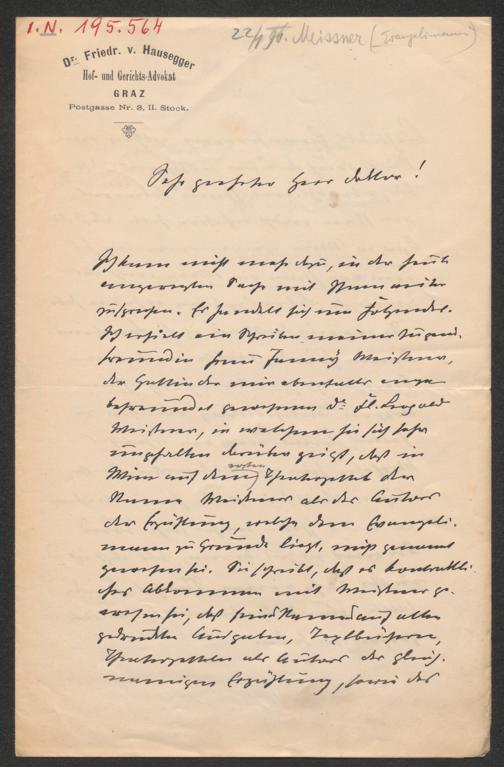 I. N. 195.564
22/1 96. Meissner (Evangelimann)
Dr. Friedr. v. Hausegger
Hof- und Gerichts-Advokat
GRAZ
Postgasse Nr. 3, II. Stock.
Sehr geehrter Herr Doktor!
Ich kam nicht mehr dazu, in der heute
angeregten Sache mit Ihnen weiter
zu sprechen. Es handelt sich um Folgendes.
Ich erhielt ein Schreiben meiner Jugend-
freundin Frau Fanny Meissner,
der Gattin der mir ebenfalls enge
befreundet gewesenen Dr. Fl. Leopold
Meissner, in welchem sie sich sehr
ungehalten darüber zeigt, daß in
Wien auf dem ersten Theaterzettel der
Name Meissner als des Autors
der Erzählung, welche dem Evangeli-
mann zu Grunde liegt, nicht genannt
gewesen sei. Sie schreibt, daß es kontraktli-
ches Abkommen mit Meissner ge-
wesen sei, daß sein Name auf allen
gedruckten Ausgaben, Textbüchern,
Theaterzetteln als Autors der gleich-
namigen Erzählung, sowie des